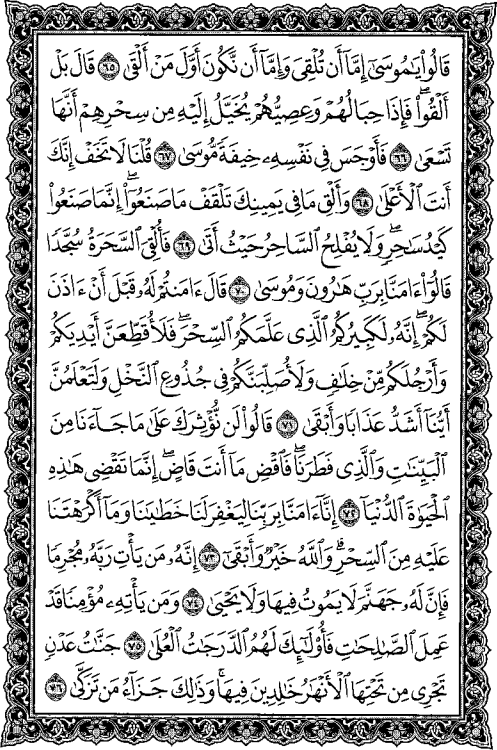 قَالُوا۟ يَٰمُوسَىٰٓ إِمَّآ أَن تُلْقِىَ وَإِمَّآ أَن نَّكُونَ أَوَّلَ مَنْ أَلْقَىٰ ٦٥ قَالَ بَلْ
أَلْقُوا۟ فَإِذَا حِبَالُهُمْ وَعِصِيُّهُمْ يُخَيَّلُ إِلَيْهِ مِن سِحْرِهِمْ أَنَّهَا
تَسْعَىٰ ٦٦ فَأَوْجَسَ فِى نَفْسِهِۦ خِيفَةً مُّوسَىٰ ٦٧ قُلْنَا لَا تَخَفْ إِنَّكَ
أَنتَ ٱلْأَعْلَىٰ ٦٨ وَأَلْقِ مَا فِى يَمِينِكَ تَلْقَفْ مَا صَنَعُوٓا۟ إِنَّمَا صَنَعُوا۟
كَيْدُ سَٰحِرٍ وَلَا يُفْلِحُ ٱلسَّاحِرُ حَيْثُ أَتَىٰ ٦٩ فَأُلْقِىَ ٱلسَّحَرَةُ سُجَّدًا
قَالُوٓا۟ ءَامَنَّا بِرَبِّ هَٰرُونَ وَمُوسَىٰ ٧٠ قَالَ ءَامَنتُمْ لَهُۥ قَبْلَ أَنْ ءَاذَنَ
لَكُمْ إِنَّهُۥ لَكَبِيرُكُمُ ٱلَّذِى عَلَّمَكُمُ ٱلسِّحْرَ فَلَأُقَطِّعَنَّ أَيْدِيَكُمْ
وَأَرْجُلَكُم مِّنْ خِلَٰفٍ وَلَأُصَلِّبَنَّكُمْ فِى جُذُوعِ ٱلنَّخْلِ وَلَتَعْلَمُنَّ
أَيُّنَآ أَشَدُّ عَذَابًا وَأَبْقَىٰ ٧١ قَالُوا۟ لَن نُّؤْثِرَكَ عَلَىٰ مَا جَآءَنَا مِنَ
ٱلْبَيِّنَٰتِ وَٱلَّذِى فَطَرَنَا فَٱقْضِ مَآ أَنتَ قَاضٍ إِنَّمَا تَقْضِى هَٰذِهِ
ٱلْحَيَوٰةَ ٱلدُّنْيَآ ٧٢ إِنَّآ ءَامَنَّا بِرَبِّنَا لِيَغْفِرَ لَنَا خَطَٰيَٰنَا وَمَآ أَكْرَهْتَنَا
عَلَيْهِ مِنَ ٱلسِّحْرِ وَٱللَّهُ خَيْرٌ وَأَبْقَىٰٓ ٧٣ إِنَّهُۥ مَن يَأْتِ رَبَّهُۥ مُجْرِمًا
فَإِنَّ لَهُۥ جَهَنَّمَ لَا يَمُوتُ فِيهَا وَلَا يَحْيَىٰ ٧٤ وَمَن يَأْتِهِۦ مُؤْمِنًا قَدْ
عَمِلَ ٱلصَّٰلِحَٰتِ فَأُو۟لَٰٓئِكَ لَهُمُ ٱلدَّرَجَٰتُ ٱلْعُلَىٰ ٧٥ جَنَّٰتُ عَدْنٍ
تَجْرِى مِن تَحْتِهَا ٱلْأَنْهَٰرُ خَٰلِدِينَ فِيهَا وَذَٰلِكَ جَزَآءُ مَن تَزَكَّىٰ ٧٦